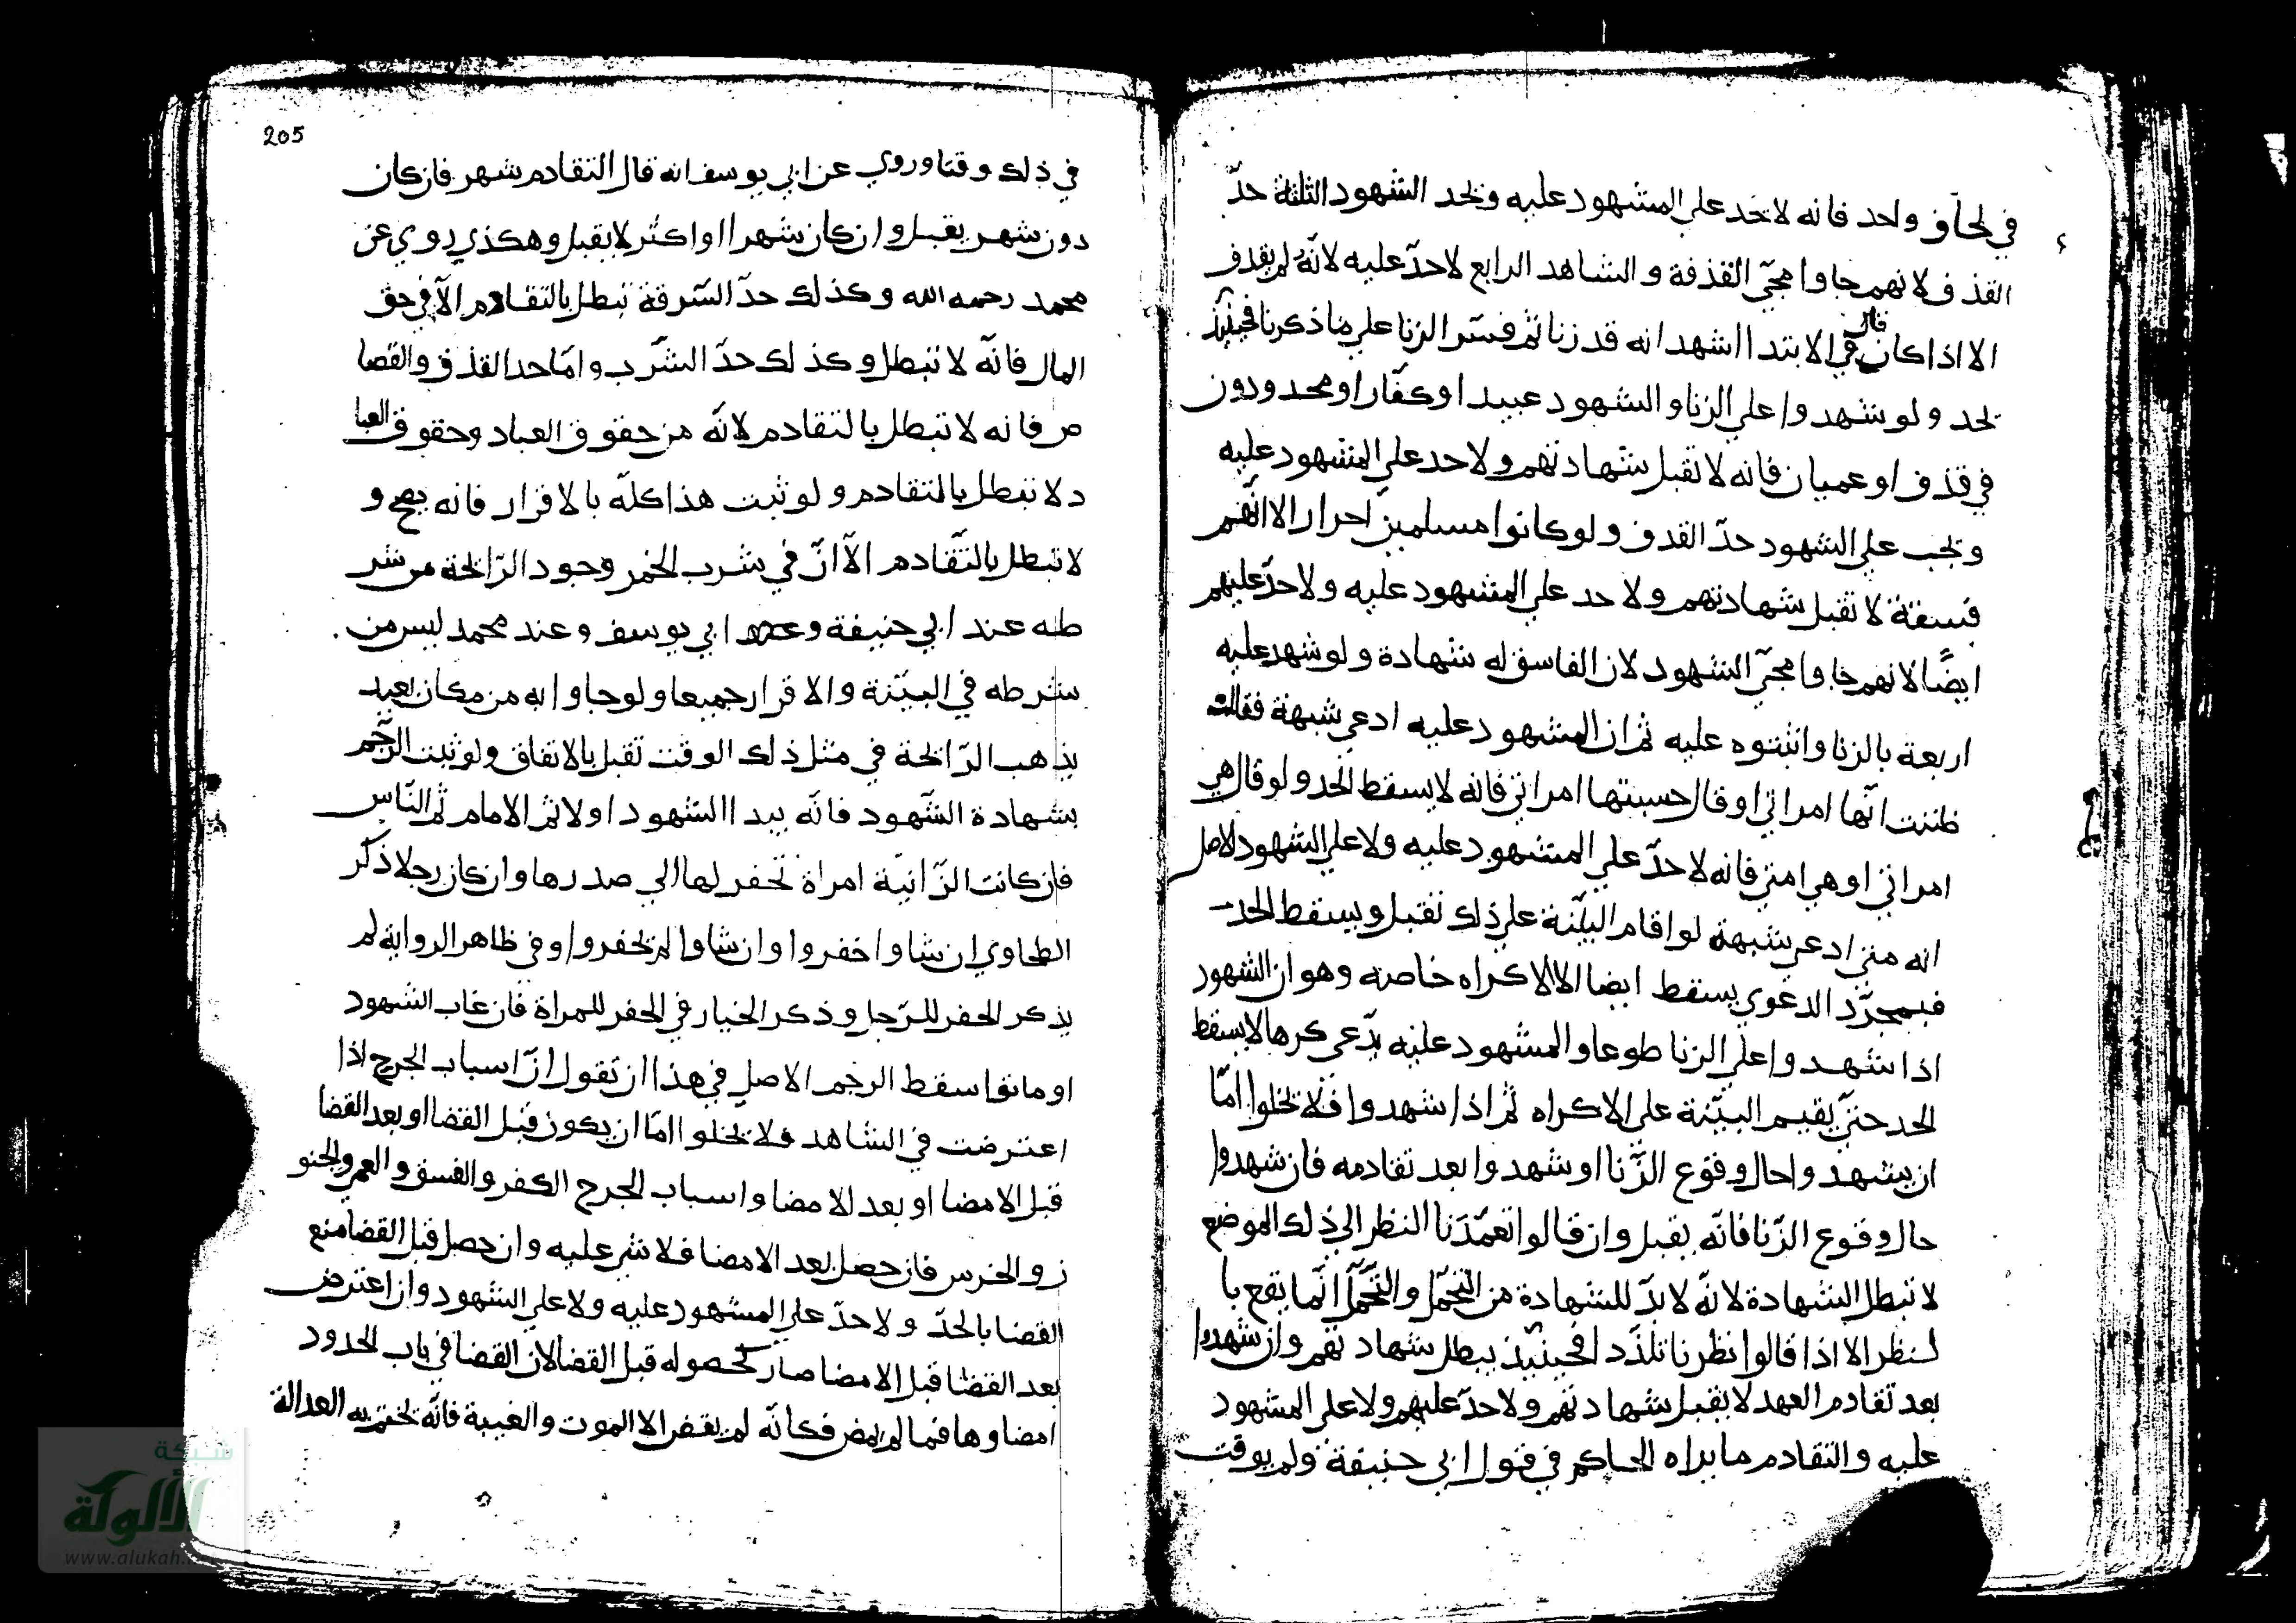 في لحاف واحد فانه لا حد على المشهود عليه ويحد الشهود الثلثة حدّ
القذف لانهم جاوا مجئ القذفة والشاهد الرابع لا حدّ عليه لانّه لم يقذف
الا اذا كان قال في الابتدا اشهد انه قد زنا ثم فسّر الزنا على ما ذكرنا فحينئذ
يحد ولو شهدوا على الزنا والشهود عبيدا او كفّار او محدودون
في قذف او عميان فانه لا تقبل شهادتهم ولا حد على المشهود عليه
ويجب على الشهود حدّ القذف ولو كانوا مسلمين احرار الا انّهم
فسقة لا تقبل شهادتهم ولا حد على المشهود عليه ولا حدّ عليهم
ايضًا لانهم جاوا مجئ الشهود لان الفاسق له شهادة ولو شهد عليه
اربعة بالزنا واثبتوه عليه ثم ان المشهود عليه ادعى شبهة فقال
ظننت انّها امراتي او قال حسبتها امراتي فانه لا يسقط الحد ولو قال هي
امراتي او هي امتي فانه لا حدّ على المشهود عليه ولا على الشهود لاصل
انه متى ادعى شبهة لو اقام البيّنة على ذلك تقبل ويسقط الحد
فبمجرّد الدعوى يسقط ايضا الا الاكراه خاصة وهو ان الشهود
اذا شهدوا على الزنا طوعا والمشهود عليه يدّعى كرها لا يسقط
الحد حتىّ يقيم البيّنة على الاكراه ثم اذا شهدوا فلا يخلوا امّا
ان يشهدوا حال وقوع الزّنا او شهدوا بعد تقادمه فان شهدوا
حال وقوع الزّنا فانّه يقبل وان قالوا تعمّدنا النظر الى ذلك الموضع
لا تبطل الشهادة لانّه لا بدّ للشهادة من التحمّل والتحمّل انّما يقع با
لنظر الا اذا قالوا نظرنا تلذّدا فحينئذ يبطل شهادتهم وان شهدوا
بعد تقادم العهد لا يقبل شهادتهم ولا حدّ عليهم ولا على المشهود
عليه والتقادم ما يراه الحاكم في قول ابي حنيفة ولم يوقت
205
في ذلك وقتا وروي عن ابي يوسف انه قال التقادم شهر فان كان
دون شهر يقبل وان كان شهرا او اكثر لا يقبل وهكذي روي عن
محمد رحمه الله وكذلك حدّ السّرقة تبطل بالتقادم الّا في حق
المال فانّه لا تبطل وكذلك حدّ الشّرب وامّا حد القذف والقصا
ص فانه لا تبطل بالتقادم لانّه من حقوق العباد وحقوق العبا
د لا تبطل بالتقادم ولو ثبت هذا كلّه بالاقرار فانه يصح و
لا تبطل بالتّقادم الّا انّ في شرب الخمر وجود الرّائحة من شر
طه عند ابي حنيفة وعند ابي يوسف وعند محمد ليس من
شرطه في البيّنة والاقرار جميعا ولو جاوا به من مكان بعيد
يذهب الرّائحة في مثل ذلك الوقت تقبل بالاتفاق ولو ثبت الرّجم
بشهادة الشّهود فانّه يبدا الشهود اولا ثم الامام ثم النّاس
فان كانت الزّانيّة امراة تحفر لها الى صدرها وان كان رجلا ذكر
الطحاوي ان شاوا حفروا وان شاوا لم يحفروا وفي ظاهر الرواية لم
يذكر الحفر للرّجل وذكر الخيار في الحفر للمراة فان غاب الشهود
او ماتوا سقط الرجم الاصل في هذا ان تقول انّ اسباب الجرح اذا
اعترضت في الشاهد فلا يخلوا امّا ان يكون قبل القضا او بعد القضا
قبل الامضا او بعد الامضا واسباب الجرح الكفر والفسق والعمى والجنو
ن والخرس فان حصل بعد الامضا فلا شي عليه وان حصل قبل القضا منع
القضا بالحدّ ولا حدّ على المشهود عليه ولا على الشهود وان اعترض
بعد القضا قبل الامضا صار كحصوله قبل القضا لان القضا في باب الحدود
امضاوها فما لم يمض فكانّه لم يقض الا الموت والغيبة فانّه تختم به العدالة
شبكة
الألوكة
www.alukah.